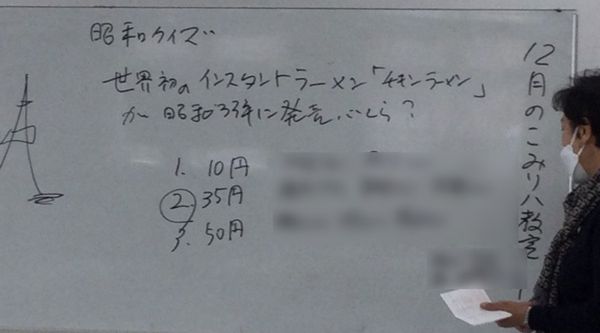 昭和クイズ
世界初のインスタントラーメン「チキンラーメン」
が昭和33年に発売。いくら?
1. 10円
2. 35円
3. 50円
12月のこみリハ教室